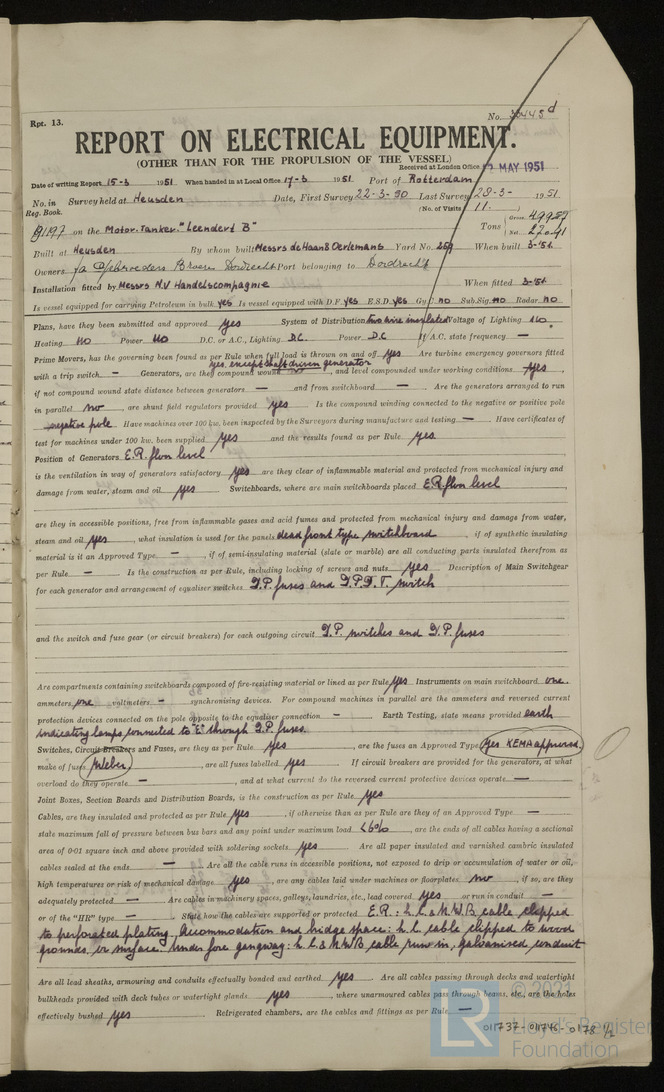 Rpt. 13.
No. 30445 d
REPORT ON ELECTRICAL EQUIPMENT.
(OTHER THAN FOR THE PROPULSION OF THE VESSEL)
Received at London Office MAY 1951
Date of writing Report 15-3 1951 When handed in at Local Office 17-3 1951 Port of Rotterdam
No. in Reg. Book. Survey held at Heusden Date, First Survey 22-3-50 Last Survey 28-3- 1951
(No. of Visits 11.)
91197 on the Motor-Tanker "Leendert B" Tons Gross 499.87 Net
Built at Heusden By whom built Messrs de Haan & Oerlemans Yard No. 259 When built 3-'51
Owners Dordrecht Port belonging to Dordrecht
Installation fitted by Messrs N.V Handelscompagnie When fitted 3-'51
Is vessel equipped for carrying Petroleum in bulk yes Is vessel equipped with D.F. yes E.S.D. yes Gy.C no Sub.Sig. no Radar no
Plans, have they been submitted and approved yes System of Distribution two wire insulated Voltage of Lighting 110
Heating no Power 110 D.C. or A.C., Lighting D.C. Power D.C If A.C. state frequency —
Prime Movers, has the governing been found as per Rule when full load is thrown on and off yes Are turbine emergency governors fitted
yes, except shaft driven generator
with a trip switch. — Generators, are they compound wound, and level compounded under working conditions yes,
if not compound wound state distance between generators — and from switchboard — Are the generators arranged to run
in parallel no, are shunt field regulators provided yes Is the compound winding connected to the negative or positive pole
negative pole Have machines over 100 kw. been inspected by the Surveyors during manufacture and testing — Have certificates of
test for machines under 100 kw. been supplied yes and the results found as per Rule yes
Position of Generators E.R. floor level
is the ventilation in way of generators satisfactory yes are they clear of inflammable material and protected from mechanical injury and
damage from water, steam and oil yes Switchboards, where are main switchboards placed E.R. floor level
are they in accessible positions, free from inflammable gases and acid fumes and protected from mechanical injury and damage from water,
steam and oil yes, what insulation is used for the panels dead front type switchboard, if of synthetic insulating
material is it an Approved Type —, if of semi-insulating material (slate or marble) are all conducting parts insulated therefrom as
per Rule — Is the construction as per Rule, including locking of screws and nuts yes Description of Main Switchgear
for each generator and arrangement of equaliser switches D.P. fuses and D.P.D.T. switch
and the switch and fuse gear (or circuit breakers) for each outgoing circuit D.P. switches and D.P. fuses
Are compartments containing switchboards composed of fire-resisting material or lined as per Rule yes Instruments on main switchboard one
ammeters one voltmeters — synchronising devices. For compound machines in parallel are the ammeters and reversed current
protection devices connected on the pole opposite to the equaliser connection — Earth Testing, state means provided earth
indicating lamps connected to "E" through D.P. fuses.
Switches, Circuit Breakers and Fuses, are they as per Rule yes, are the fuses an Approved Type Yes KEMA approved.
make of fuses Weber, are all fuses labelled yes If circuit breakers are provided for the generators, at what
overload do they operate —, and at what current do the reversed current protective devices operate —
Joint Boxes, Section Boards and Distribution Boards, is the construction as per Rule yes
Cables, are they insulated and protected as per Rule yes, if otherwise than as per Rule are they of an Approved Type —
state maximum fall of pressure between bus bars and any point under maximum load <6%, are the ends of all cables having a sectional
area of 0·01 square inch and above provided with soldering sockets yes Are all paper insulated and varnished cambric insulated
cables sealed at the ends — Are all the cable runs in accessible positions, not exposed to drip or accumulation of water or oil,
high temperatures or risk of mechanical damage yes, are any cables laid under machines or floorplates no, if so, are they
adequately protected — Are cables in machinery spaces, galleys, laundries, etc., lead covered yes or run in conduit —
or of the "HR" type — State how the cables are supported or protected E.R: L.C & M.W.B cable clipped
to perforated plating. Accommodation and bridge space: L.C. cable clipped to wood
grounds or surface. Under fore gangway: L.C & M.W.B cable run in, galvanised conduit
Are all lead sheaths, armouring and conduits effectually bonded and earthed yes Are all cables passing through decks and watertight
bulkheads provided with deck tubes or watertight glands yes, where unarmoured cables pass through beams, etc., are the holes
effectively bushed yes Refrigerated chambers, are the cables and fittings as per Rule —
© 2021
LR
Lloyd's Register
Foundation
011737-011746-0178 1/2